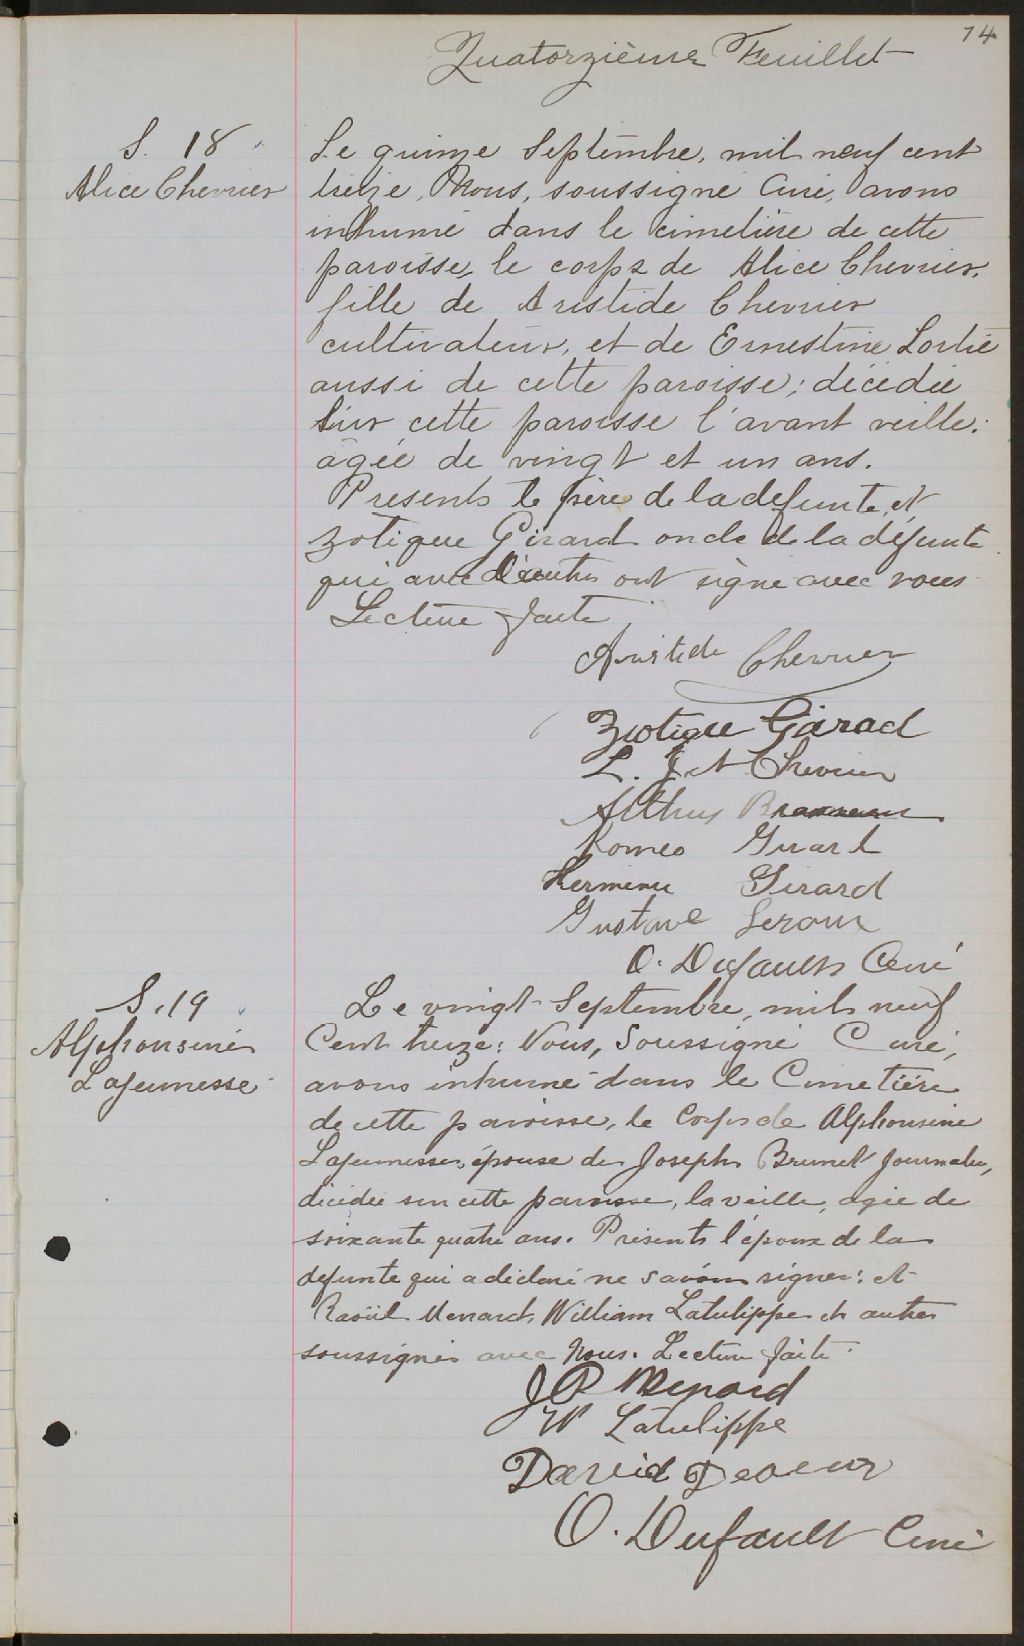 14
Quatorzième Feuillet
S. 18
Alice Chevrier
Le quinze Septembre, mil neuf cent
treize, Nous, soussigné Curé, avons
inhumé dans le cimetière de cette
paroisse, le corps de Alice Chevrier,
fille de Aristide Chevrier
cultivateur, et de Ernestine Lortie
aussi de cette paroisse; décédée
sur cette paroisse l'avant veille:
âgée de vingt et un ans.
Présents le père de la défunte, et
Zotique Girard oncle de la défunte
qui avec d'autres ont signé avec nous
Lecture faite
Aristide Chevrier
Zotique Girard
L. J A Chevrier
Arthur
Romeo Girard
Girard
Gustave Leroux
O. Dufault Curé
S. 19
Alphonsine
Lajeunesse
Le vingt Septembre, mil neuf
Cent treize: Nous, Soussigné Curé,
avons inhumé dans le Cimetière
de cette paroisse, le Corps de Alphonsine
Lajeunesse, épouse de Joseph Brunet journalier,
décédée sur cette paroisse, la veille, agée de
soixante quatre ans. Présents l'époux de la
defunte qui a déclaré ne savoir signer: et
Raöul Menard, William Latulippe et autres
soussignés avec Nous. Lecture faite.
J R Menard
W Latulippe
David
O. Dufault Curé